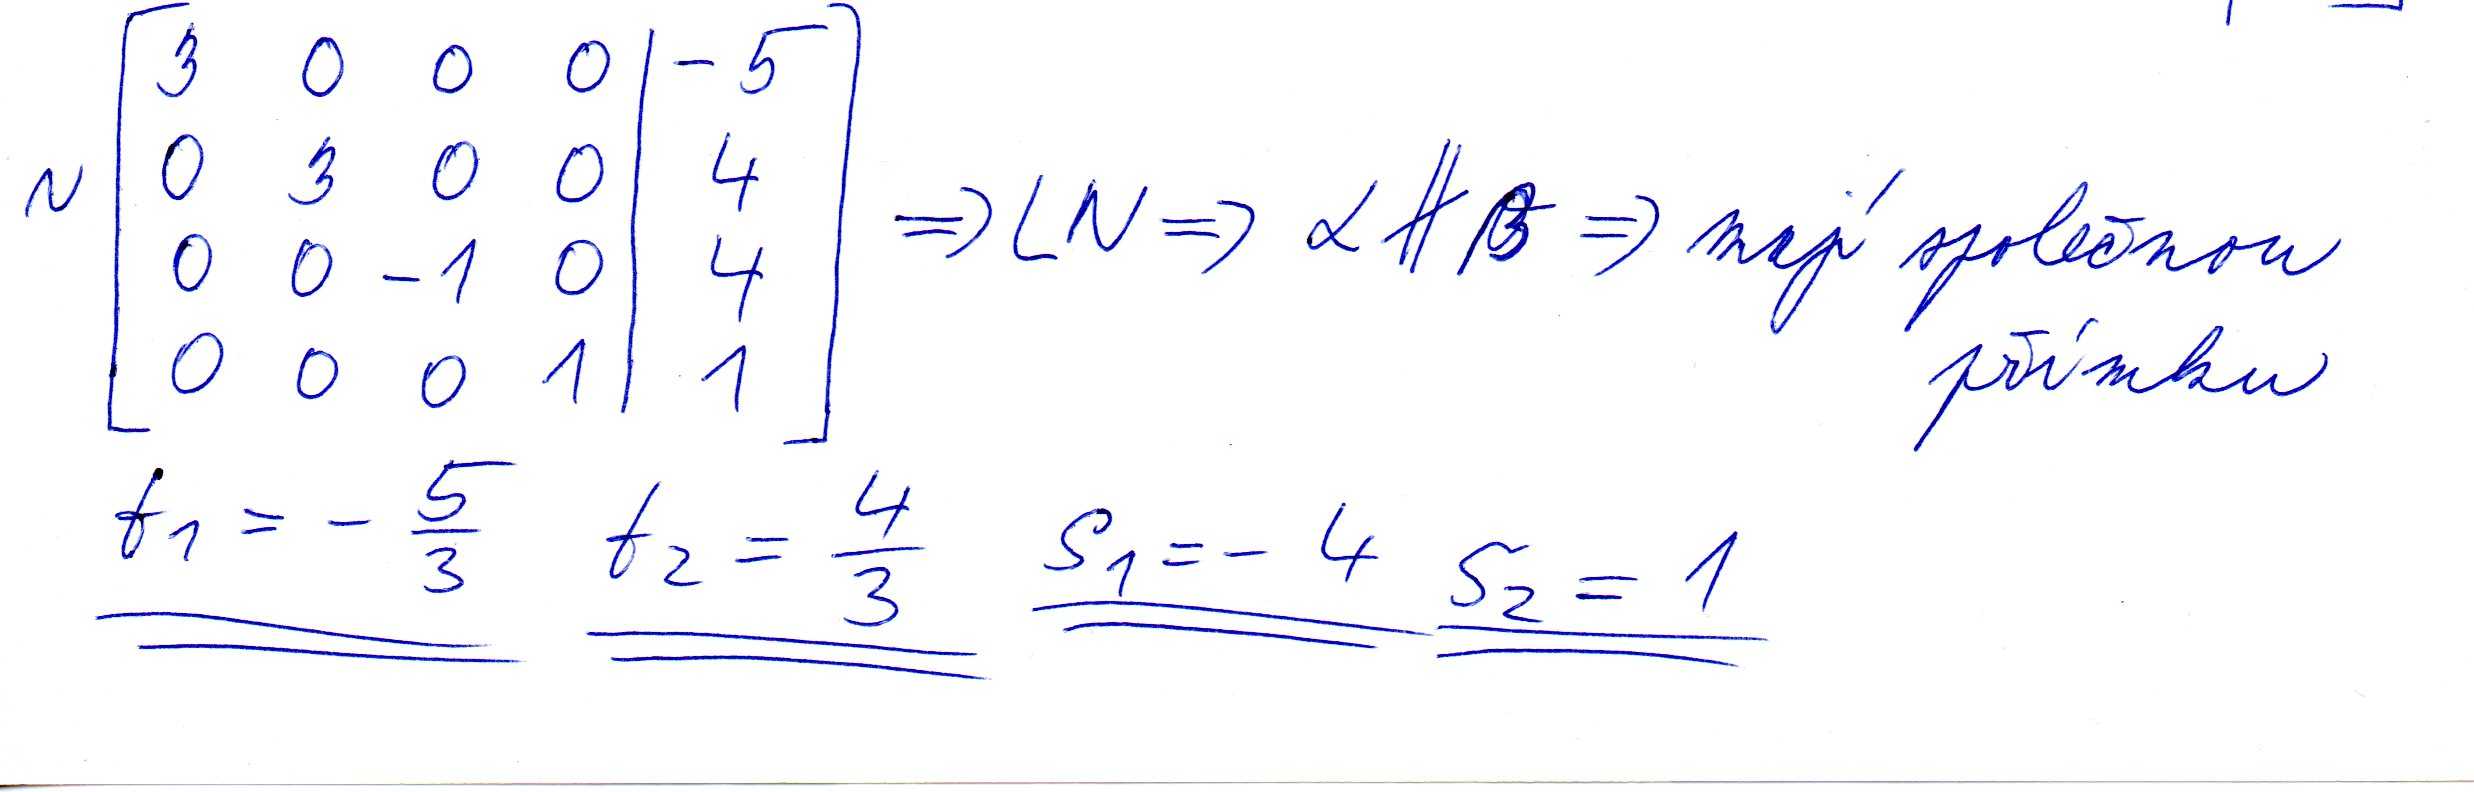 ~ [ 3 0 0 0 | -5
0 3 0 0 | 4
0 0 -1 0 | 4
0 0 0 1 | 1 ]
=> LN => α ∦ β => mají společnou
přímku
t₁ = - 5/3 t₂ = 4/3 s₁ = - 4 s₂ = 1